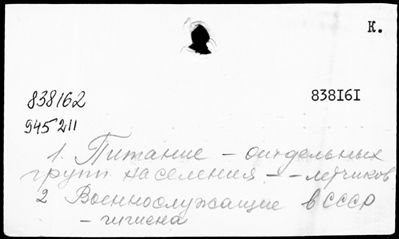 К.
838162
838161
945211
1. Питание – отдельных
групп населения – – летчиков
2 Военнослужащие в СССР
– гигиена